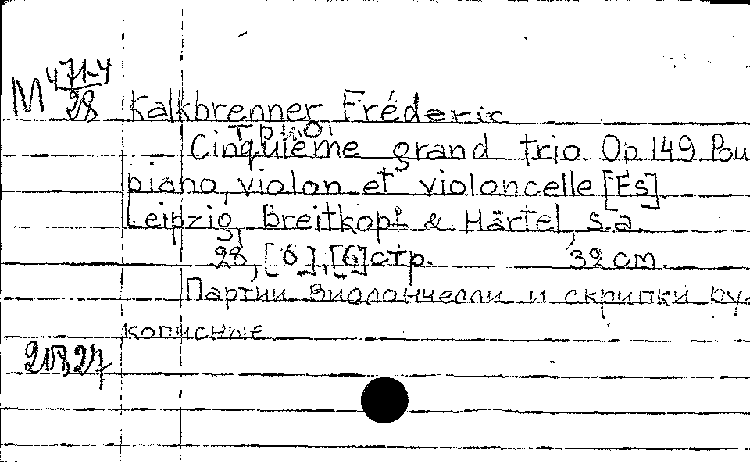 M 471-4/28
Kalkbrenner Fréderic
Трио.
Cinquième grand trio. Op. 149. Pou
piano, violon et violoncelle [Es].
Leipzig, Breitkopf & Härtel, s.a.
28, [6], [6] стр. 32 см.
Партии виолончелли и скрипки ру-
кописные